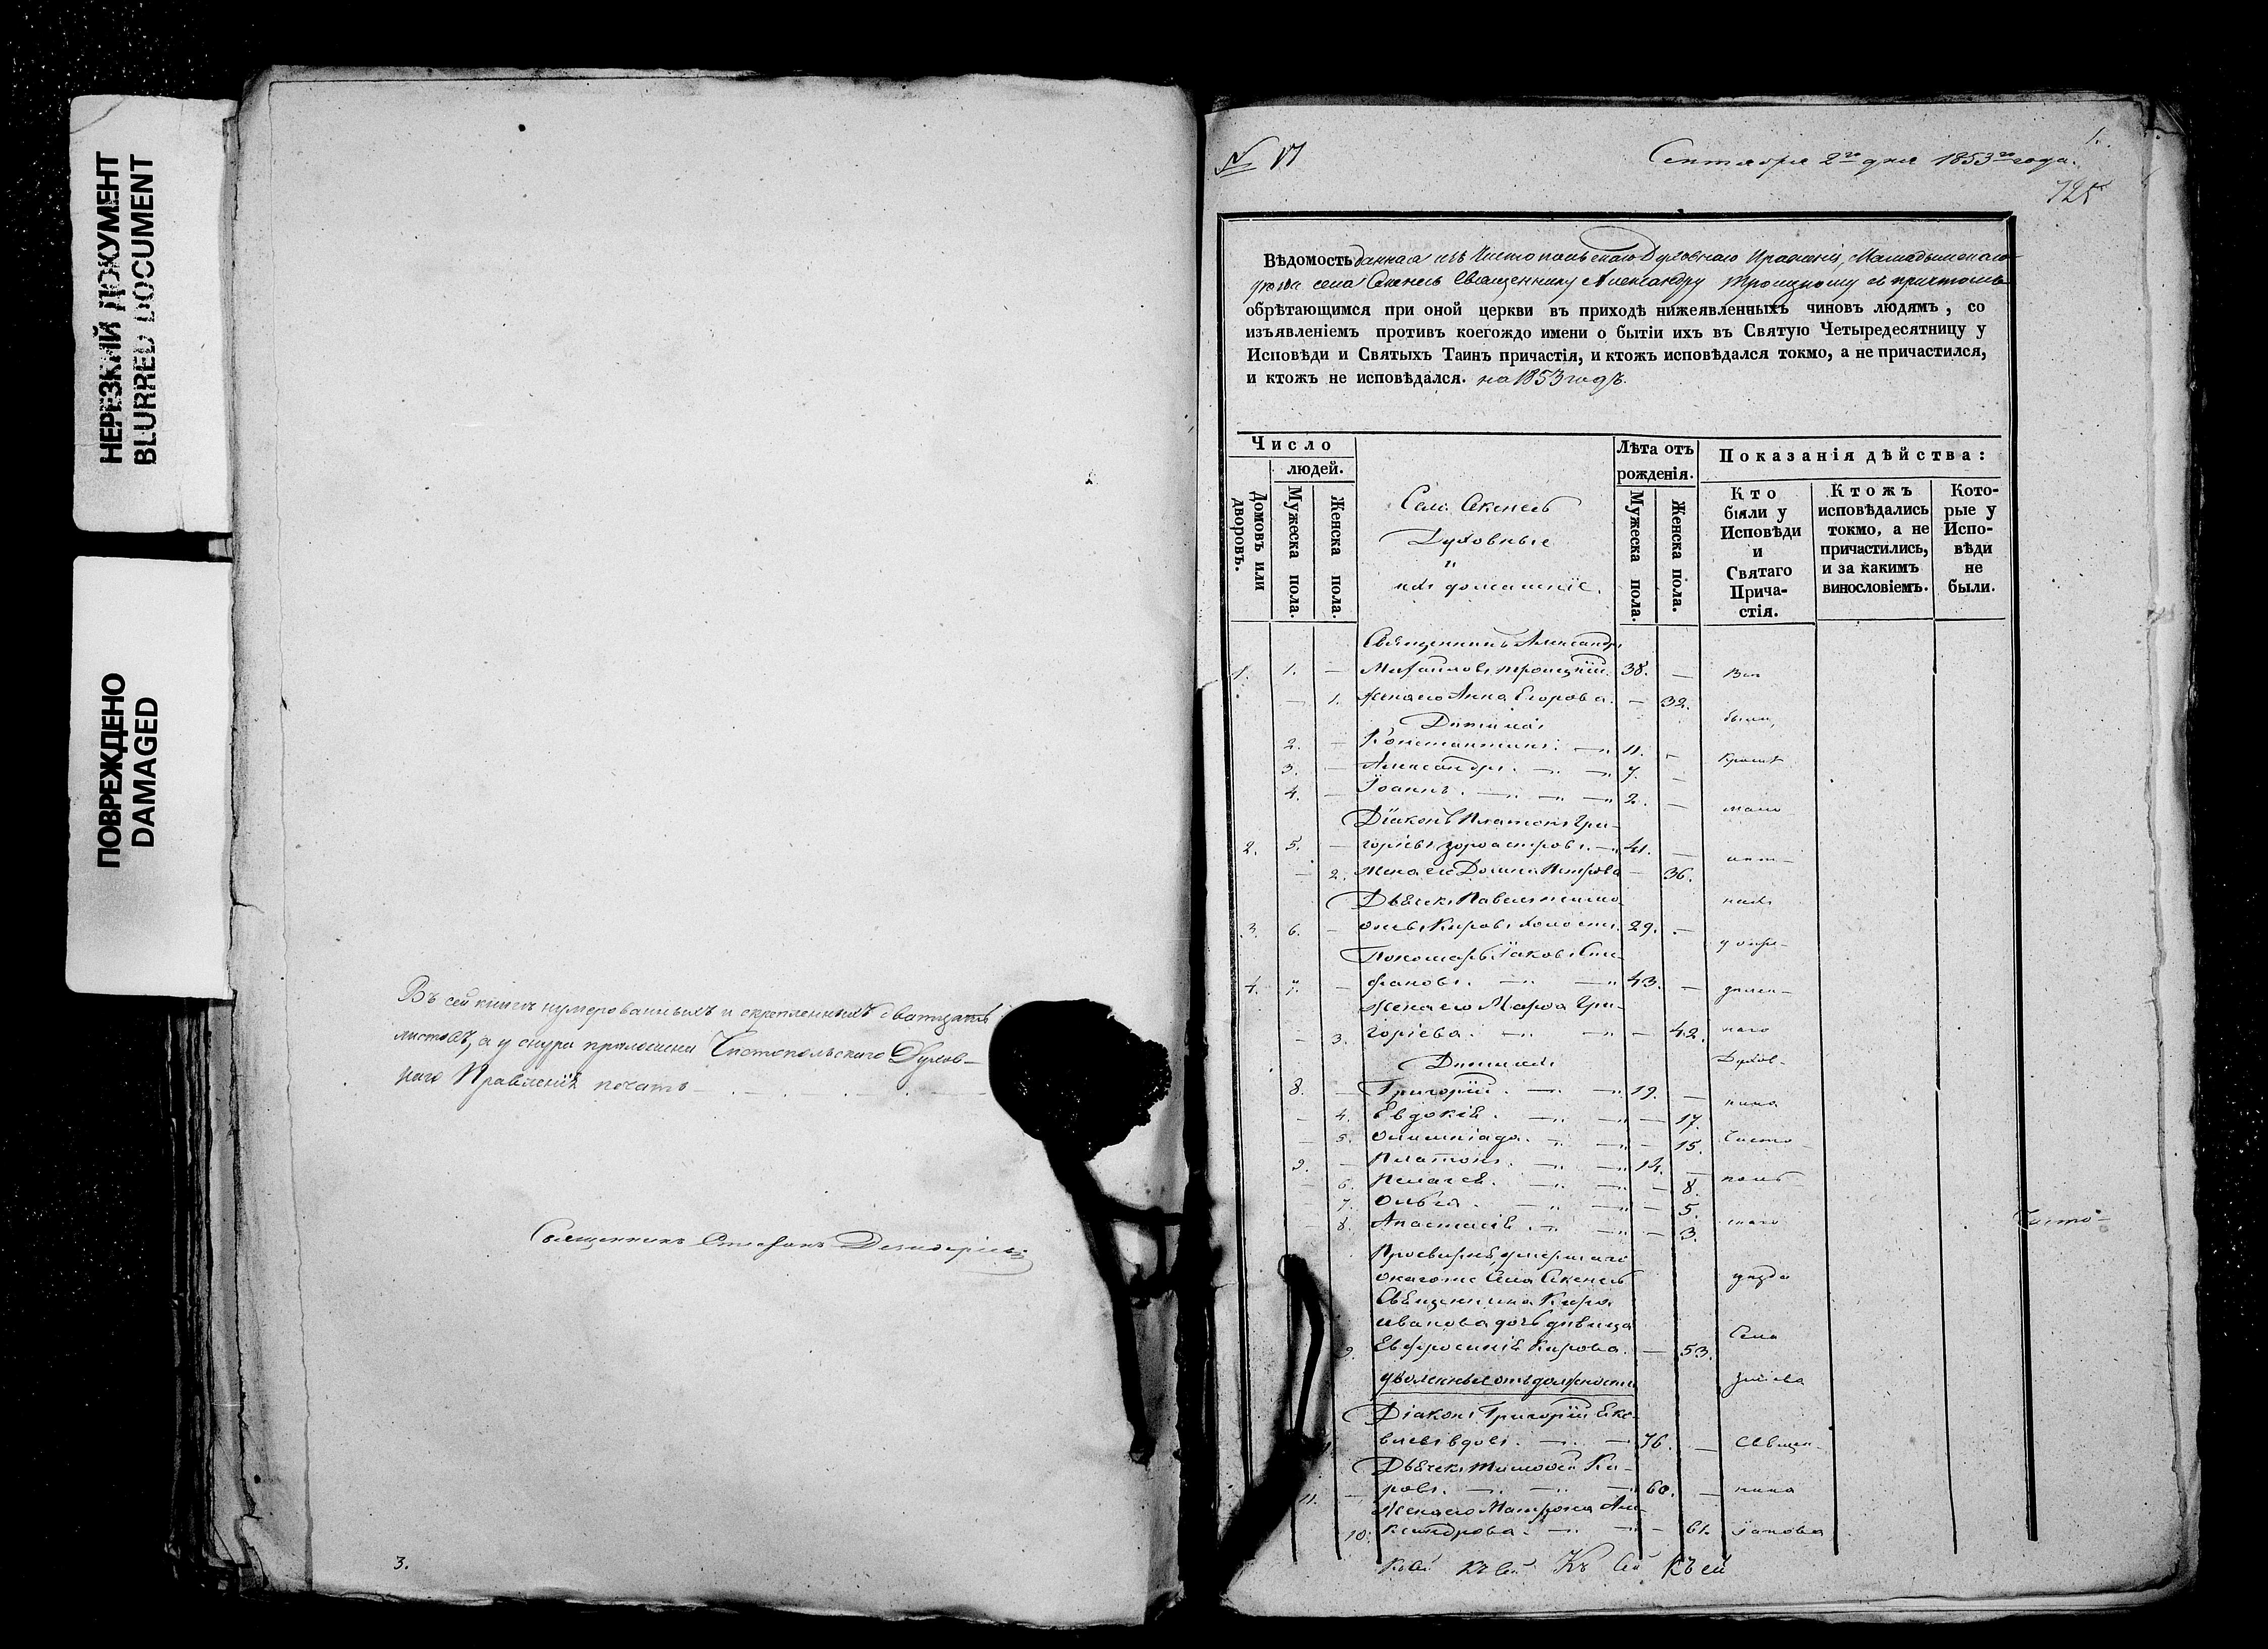 НЕРЕЗКИЙ ДОКУМЕНТ
BLURRED DOCUMENT
ПОВРЕЖДЕНО
DAMAGED
Въ сей книгѣ нумерованныхъ и скрепленныхъ двадцать
листовъ, а у снура приложена Чистопольскаго Духов-
наго Правленія печать
Священникъ Стефанъ
3.
№ VI
Сентября 2го дня 1853го года.
1.
725
Вѣдомость данная изъ Чистопольскаго Духовнаго Правленія, Мамадышскаго
уѣзда села Секенесь Священнику Александру Троицкому съ причтомъ
обрѣтающимся при оной церкви въ приходѣ нижеявленныхъ чиновъ людямъ, со
изъявленіемъ противъ коегождо имени о бытіи ихъ въ Святую Четыредесятницу у
Исповѣди и Святыхъ Таинъ причастія, и ктожъ исповѣдался токмо, а не причастился,
и ктожъ не исповѣдался. на 1853 годъ.
Число
людей.
Домовъ или дворовъ.
Мужеска пола.
Женска пола.
Духовные
и
ихъ домашніе.
Лѣта отъ
рожденія.
Мужеска пола.
Женска пола.
Показанія дѣйства:
Кто
были у
Исповѣди
и
Святаго
Прича-
стія.
Ктожъ
исповѣдались
токмо, а не
причастились,
и за какимъ
винословіемъ.
Кото-
рые у
Испо-
вѣди
не
были.
Священникъ Александръ
1. 1. — Михаиловъ Троицкій. 38. — Вси
— 1. Жена его Анна Егорова. — 32.
были,
Дѣти ихъ
2. — Константинъ. 11. —
Кромѣ
3. — Александръ. 7. —
4. — Іоаннъ. 2. —
мало
Діаконъ Платонъ Гри-
2. 5. — горьевъ 41. —
— 2. Жена его Петрова — 36.
Дьячекъ Павелъ
3. 6. — Кировъ холостъ. 29. —
Пономарь Іаковъ Сте-
4. 7. — фановъ. 43. —
Жена его Марѳа Гри-
— 3. горіева. — 42.
Духов-
Дѣти ихъ
8. — Григорій. 19. —
— 4. Евдокія. — 17.
— 5. Олимпіада. — 15.
Чисто-
9. — Платонъ. 14. —
— 6. Пелагея. — 8.
поль-
— 7. Ольга. — 5.
скаго
— 8. Анастасія. — 3.
Чисто-
Просвирня, умершаго
онагоже села Секенесь
уѣзда
Священника Кира
Иванова дочь дѣвица
Села
9. Евфросинія Кирова. — 53.
Уволенные отъ должности
Діаконъ Григорій
вдовъ. 76. —
Священ-
Дьячекъ Тимоѳей Ки-
11. — ровъ. 60. — ника
Жена его Матрона Але-
10. ксандрова. — 61.
Къ сей